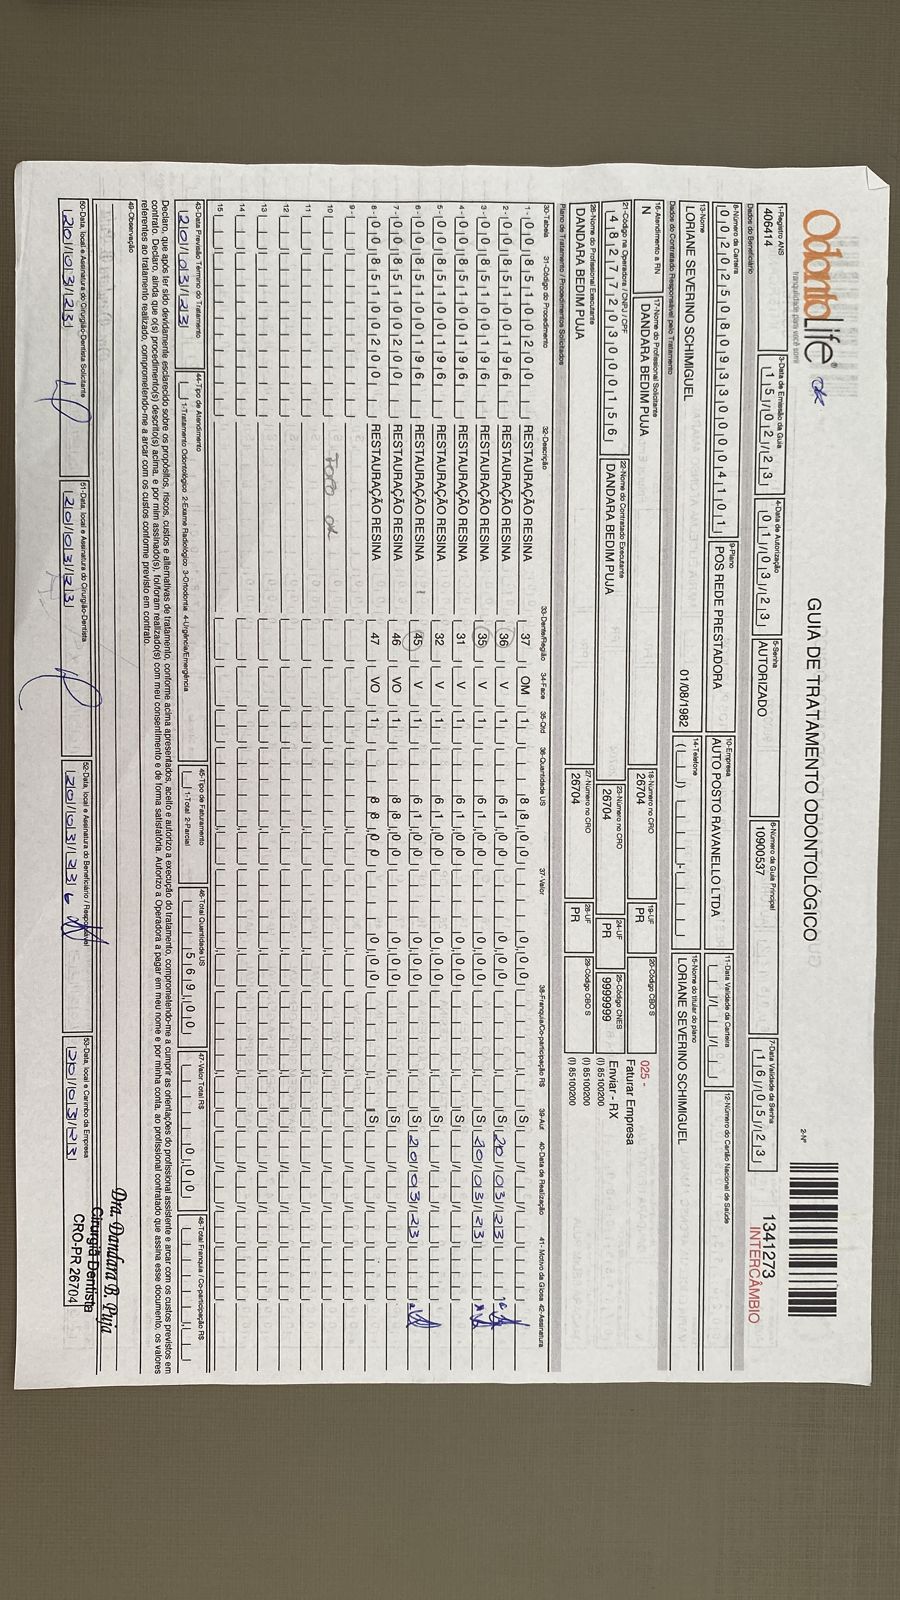 OdontoLife® ok
tranquilidade para você sorrir
GUIA DE TRATAMENTO ODONTOLÓGICO
2-Nº
1341273
INTERCÂMBIO
1-Registro ANS
406414
3-Data de Emissão da Guia
15/02/23
4-Data de Autorização
01/03/23
5-Senha
AUTORIZADO
6-Número da Guia Principal
10900537
7-Data Validade da Senha
16/05/23
Dados do Beneficiário
8-Número da Carteira
00202508093300004101
9-Plano
POS REDE PRESTADORA
10-Empresa
AUTO POSTO RAVANELLO LTDA
11-Data Validade da Carteira
12-Número do Cartão Nacional de Saúde
13-Nome
LORIANE SEVERINO SCHIMIGUEL 01/08/1982
14-Telefone
15-Nome do titular do plano
LORIANE SEVERINO SCHIMIGUEL
Dados do Contratado Responsável pelo Tratamento
16-Atendimento a RN
N
17-Nome do Profissional Solicitante
DANDARA BEDIM PUJA
18-Número no CRO
26704
19-UF
PR
20-Código CBO S
025 -
Faturar Empresa
21-Código na Operadora / CNPJ / CPF
48277203000156
22-Nome do Contratado Executante
DANDARA BEDIM PUJA
23-Número no CRO
26704
24-UF
PR
25-Código CNES
9999999
Enviar - RX
(I) 85100200
(I) 85100200
(I) 85100200
26-Nome do Profissional Executante
DANDARA BEDIM PUJA
27-Número no CRO
26704
28-UF
PR
29-Código CBO S
Plano de Tratamento / Procedimentos Solicitados
30-Tabela 31-Código do Procedimento 32-Descrição 33-Dente/Região 34-Face 35-Qtd 36-Quantidade US 37-Valor 38-Franquia/Co-participação R$ 39-Aut 40-Data de Realização 41-Motivo da Glosa 42-Assinatura
1- 00 85100200 RESTAURAÇÃO RESINA 37 OM 1 88,00 0,00 S
2- 00 85100196 RESTAURAÇÃO RESINA 36 V 1 61,00 0,00 S 20/03/23
3- 00 85100196 RESTAURAÇÃO RESINA 35 V 1 61,00 0,00 S 20/03/23
4- 00 85100196 RESTAURAÇÃO RESINA 31 V 1 61,00 0,00 S
5- 00 85100196 RESTAURAÇÃO RESINA 32 V 1 61,00 0,00 S
6- 00 85100196 RESTAURAÇÃO RESINA 45 V 1 61,00 0,00 S 20/03/23
7- 00 85100200 RESTAURAÇÃO RESINA 46 VO 1 88,00 0,00 S
8- 00 85100200 RESTAURAÇÃO RESINA 47 VO 1 88,00 0,00 S
9-
10 Foto ok
11
12
13
14
15
43-Data Previsão Término do Tratamento
20/03/23
44-Tipo de Atendimento
1-Tratamento Odontológico 2-Exame Radiológico 3-Ortodontia 4-Urgência/Emergência
45-Tipo de Faturamento
1-Total 2-Parcial
46-Total Quantidade US
569,00
47-Valor Total R$
0,00
48-Total Franquia / Co-participação R$
Declaro, que após ter sido devidamente esclarecido sobre os propósitos, riscos, custos e alternativas de tratamento, conforme acima apresentados, aceito e autorizo a execução do tratamento, comprometendo-me a cumprir as orientações do profissional assistente e arcar com os custos previstos em
contrato. Declaro, ainda que o(s) procedimento(s) descrito(s) acima, e por mim assinado(s), foi/foram realizado(s) com meu consentimento e de forma satisfatória. Autorizo a Operadora a pagar em meu nome e por minha conta, ao profissional contratado que assina esse documento, os valores
referentes ao tratamento realizado, comprometendo-me a arcar com os custos conforme previsto em contrato.
49-Observação
50-Data, local e Assinatura do Cirurgião-Dentista Solicitante
20/03/23
51-Data, local e Assinatura do Cirurgião-Dentista
20/03/23
52-Data, local e Assinatura do Beneficiário / Responsável
20/03/23
53-Data, local e Carimbo da Empresa
20/03/23
Dra. Dandara B. Puja
Cirurgiã Dentista
CRO-PR 26704